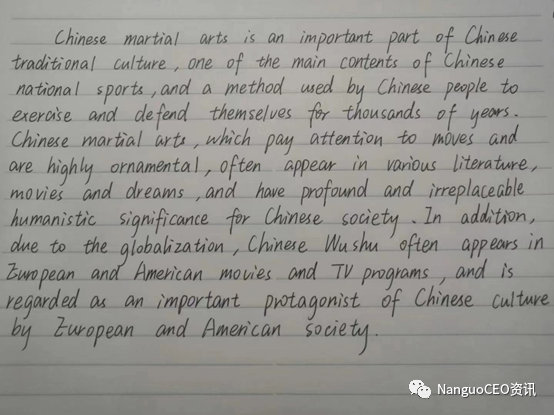 Chinese martial arts is an important part of Chinese
traditional culture, one of the main contents of Chinese
national sports, and a method used by Chinese people to
exercise and defend themselves for thousands of years.
Chinese martial arts, which pay attention to moves and
are highly ornamental, often appear in various literature,
movies and dreams, and have profound and irreplaceable
humanistic significance for Chinese society. In addition,
due to the globalization, Chinese Wushu often appears in
European and American movies and TV programs, and is
regarded as an important protagonist of Chinese culture
by European and American society.
NanguoCEO资讯